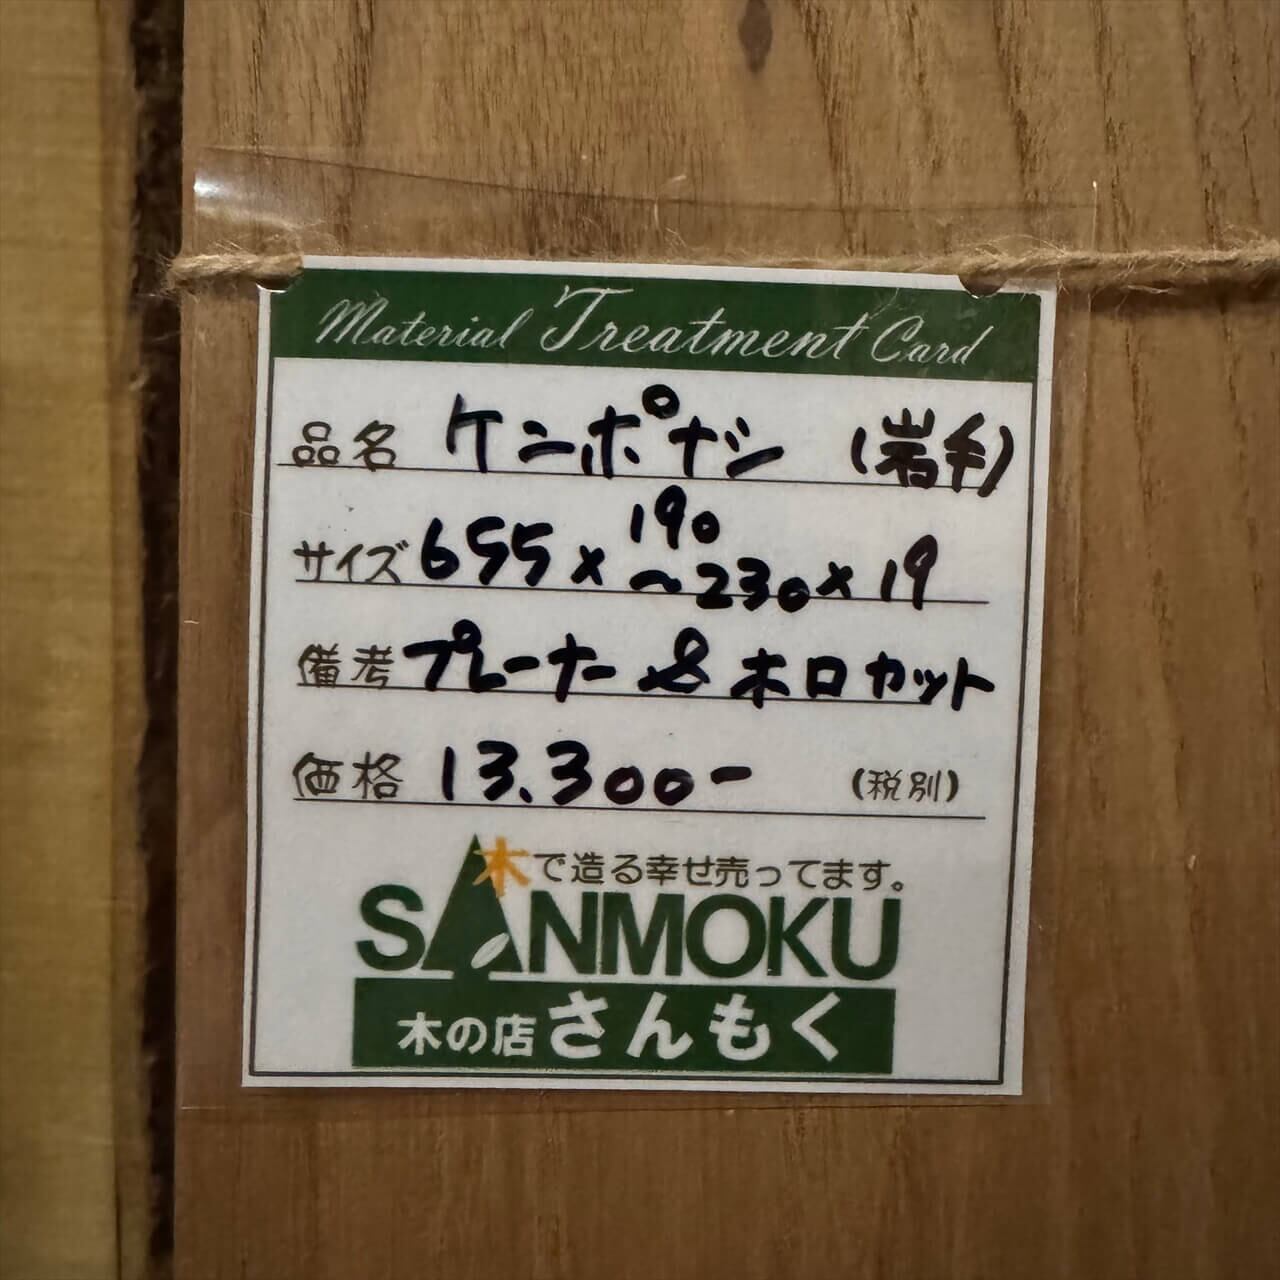 Material Treatment Card
品名 ケンポナシ (岩手)
サイズ 655×190~230×19
備考 プレーナー & 木口カット
価格 13.300- (税別)
木で造る幸せ売ってます。
SANMOKU
木の店さんもく